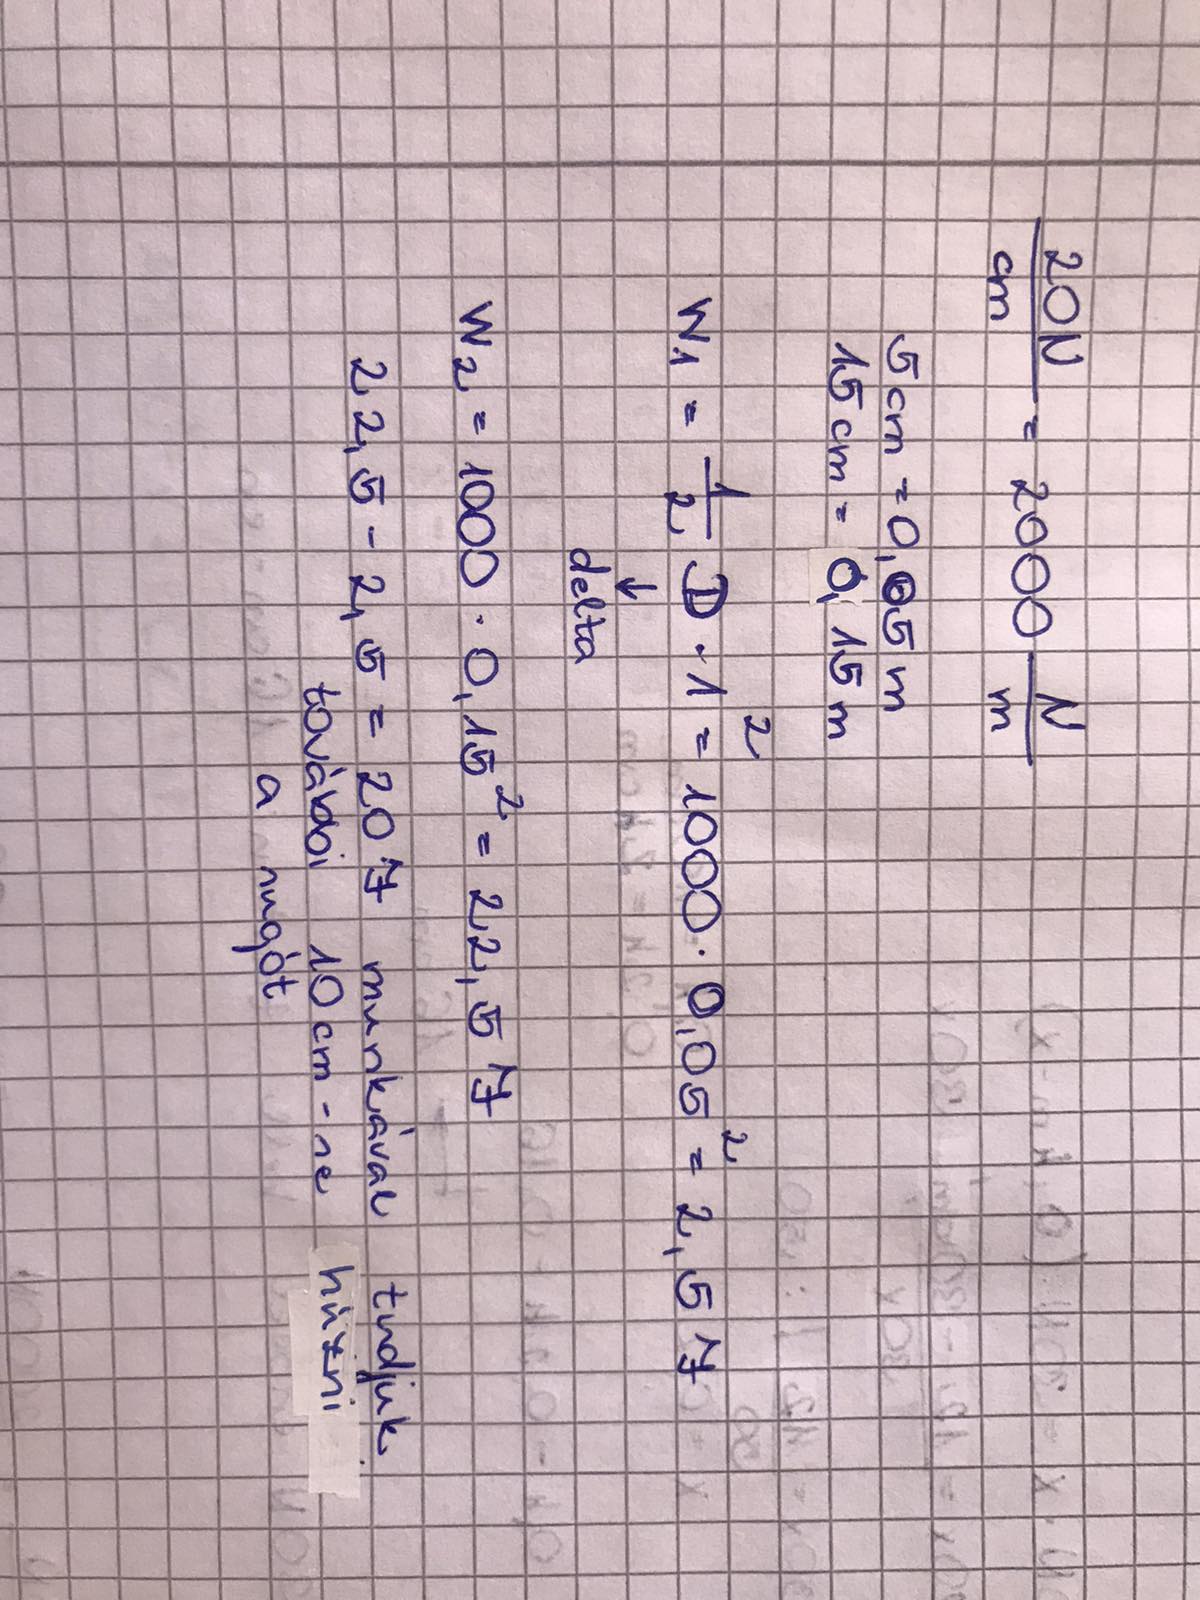 20N/cm = 2000 N/m
5cm = 0,05m
15cm = 0,15m
W₁ = 1/2 D · 1² = 1000 · 0,05² = 2,5 J
↓
delta
W₂ = 1000 · 0,15² = 22,5 J
22,5 - 2,5 = 20 J munkával tudjuk
további 10cm-re húzni
a rugót